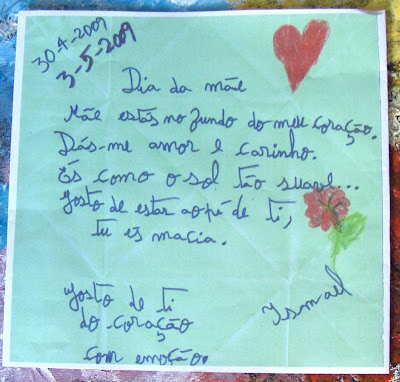 30-4-2009
3-5-2009
Dia da mãe
Mãe estás no fundo do meu coração.
Dás-me amor e carinho.
És como o sol tão suave...
Gosto de estar ao pé de ti,
tu és macia.
Gosto de ti
do coração
com emoção.
Ismael